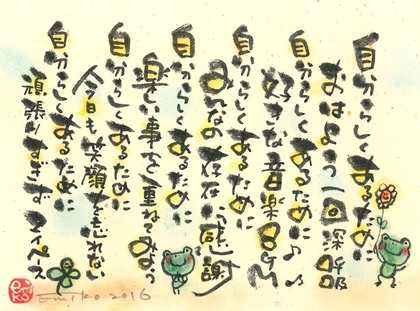 自分らしくあるために
おはよう一回深呼吸
自分らしくあるために
好きな音楽BGM
自分らしくあるために
みんなの存在に感謝
自分らしくあるために
楽しい事を重ねてみよう
自分らしくあるために
今日も笑顔を忘れない
自分らしくあるために
頑張りすぎずマイペース
Emiko 2016